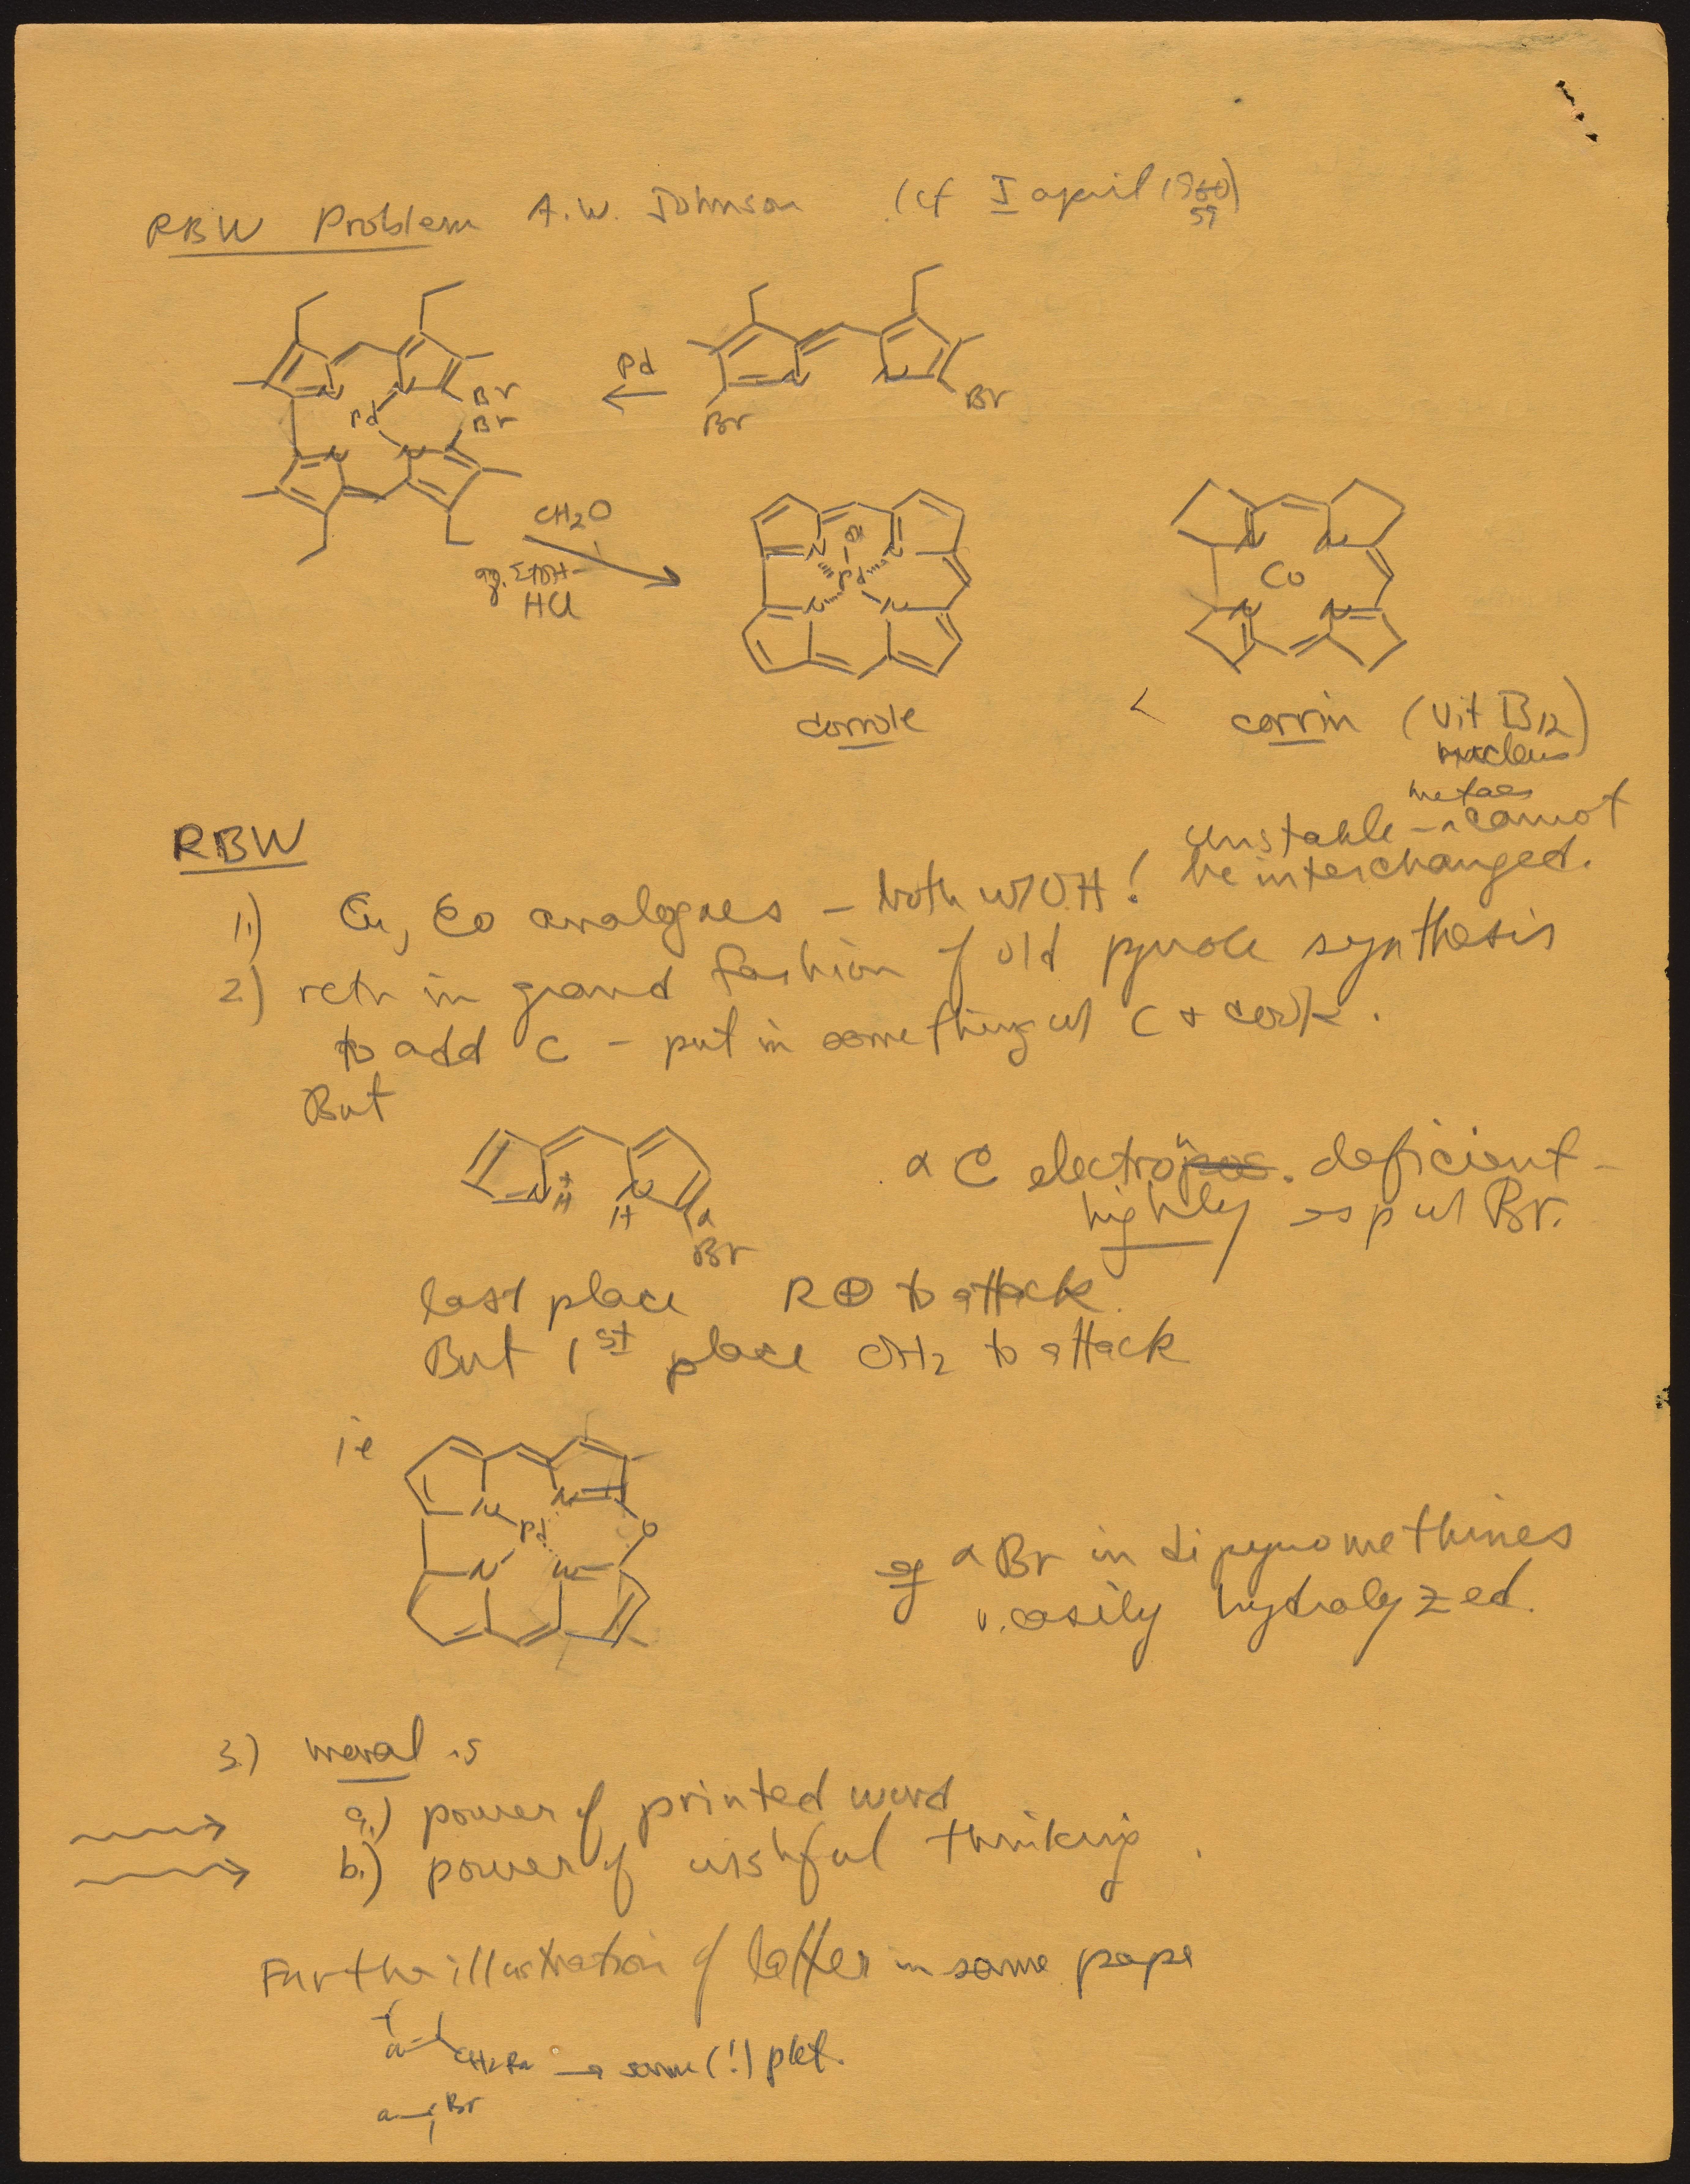 RBW Problem A.W. Johnson (cf I april 1960)
59
Pd
N N Br
Pd Br
N N
N N
Br Br
CH2O
aq. EtOH-
HCl
N N
Pd
N N
corrole
N N
Co
N N
<
corrin (Vit B12)
nucleus
RBW
metals
unstable - ^ cannot
be interchanged.
1.) Cu, Co analogues - both w/ OH!
2) retn in grand fashion of old pyrrole synthesis
to add C - put in something w/ C + cook.
But
N+ H N H α Br
α C electron deficient -
highly esp w/ Br.
last place R⊕ to attack.
But 1st place OH2 to attack
ie
N N
Pd O
N N
eg α Br in dipyrromethines
v. easily hydrolyzed.
3.) moral is
a.) power of printed word
b.) power of wishful thinking.
Further illustration of latter in same pape
CH2 → same (!) pdt.
Br